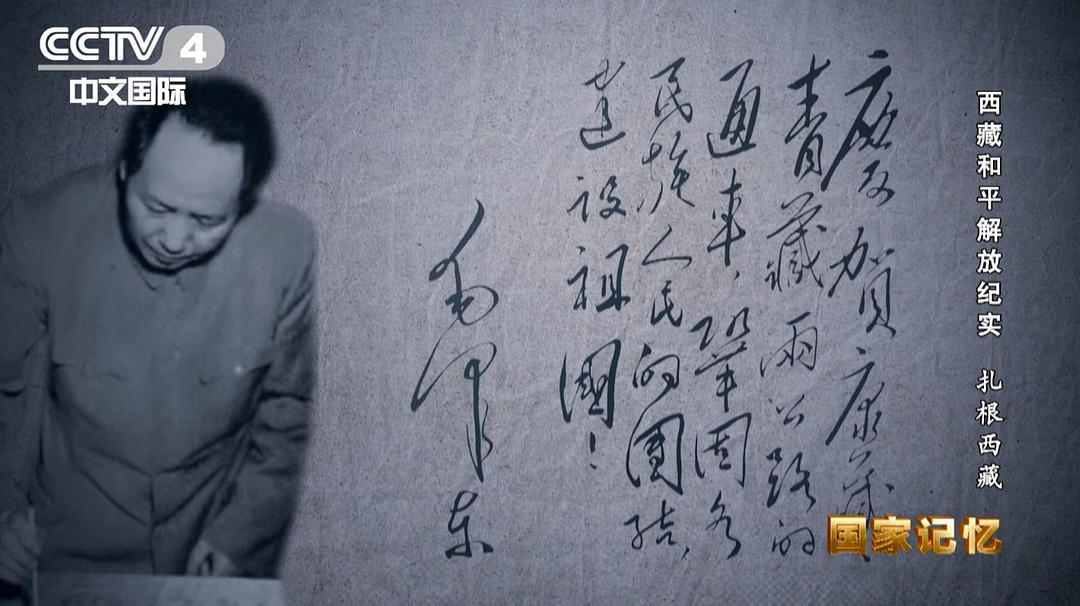 CCTV 4
中文国际
西藏和平解放纪实 扎根西藏
慶賀康藏
青藏兩公路的
通車，鞏固各
民族人民的團結，
建設祖國！
毛泽东
国家记忆